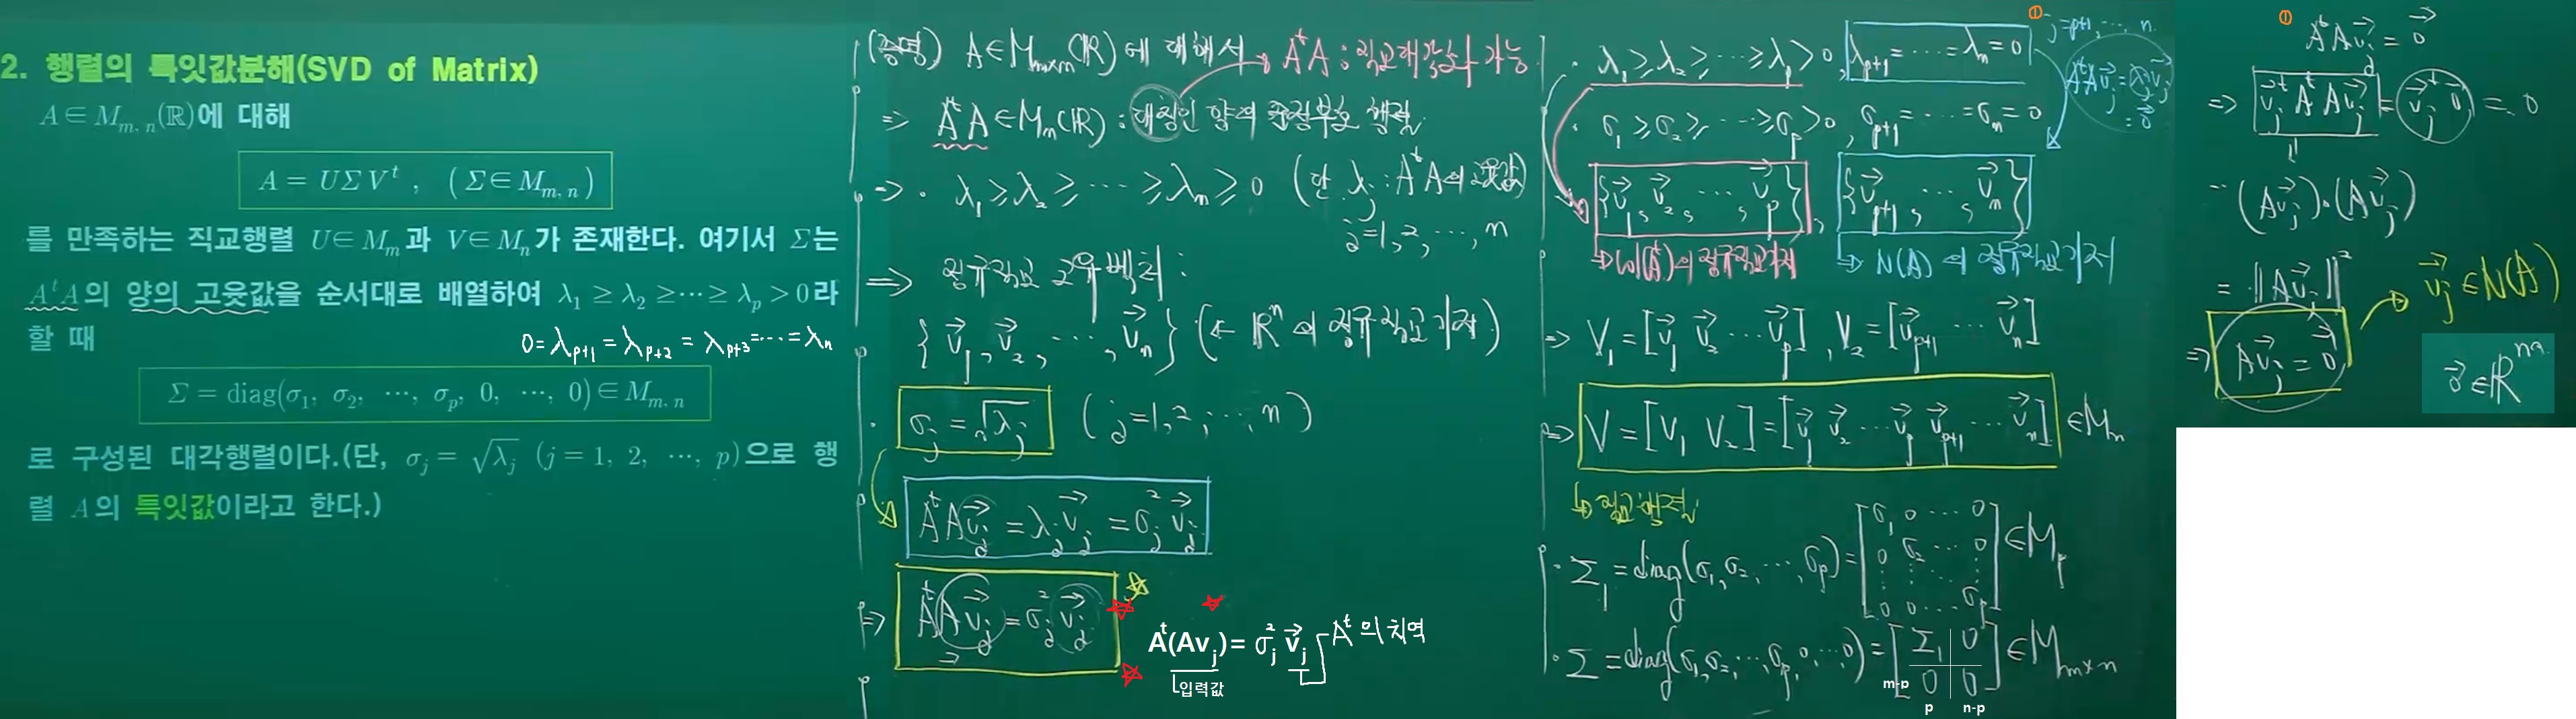 2. 행렬의 특잇값분해(SVD of Matrix)
A∈M_{m, n}(ℝ)에 대해
A = UΣV^t , ( Σ∈M_{m, n} )
를 만족하는 직교행렬 U∈M_m과 V∈M_n가 존재한다. 여기서 Σ는
A^tA의 양의 고윳값을 순서대로 배열하여 λ₁ ≥ λ₂ ≥⋯≥ λ_p > 0라
할 때
0=λ_{p+1} = λ_{p+2} = λ_{p+3}=⋯=λ_n
Σ = diag(σ₁, σ₂, ⋯, σ_p, 0, ⋯, 0)∈M_{m, n}
로 구성된 대각행렬이다.(단, σ_j = √λ_j (j = 1, 2, ⋯, p)으로 행
렬 A의 특잇값이라고 한다.)
(증명) A∈M_{m×n}(ℝ)에 대해서 A^tA : 직교대각화 가능
⇒ A^tA∈M_n(ℝ) : 대칭인 양의 준정부호 행렬
⇒ · λ₁ ≥ λ₂ ≥ ⋯ ≥ λ_n ≥ 0 (단 λ_j : A^tA의 고윳값)
j=1, 2, ⋯, n
⇒ 정규직교 고유벡터 :
{ v⃗₁, v⃗₂, ⋯, v⃗_n } (← ℝ^n의 정규직교기저)
· σ_j = √λ_j (j=1, 2, ⋯, n)
A^tAv⃗_j = λ_jv⃗_j = σ_j²v⃗_j
⇒ A^tAv⃗_j = σ_j²v⃗_j
A^t(Av_j)= σ_j² v⃗_j A^t의 치역
입력값
· λ₁ ≥ λ₂ ≥ ⋯ ≥ λ_p > 0, λ_{p+1} = ⋯ = λ_n = 0 ① j=p+1, ⋯, n
A^tAv⃗_j = λ_jv⃗_j
= 0⃗
· σ₁ ≥ σ₂ ≥ ⋯ ≥ σ_p > 0, σ_{p+1} = ⋯ = σ_n = 0
{v⃗₁, v⃗₂, ⋯, v⃗_p}, {v⃗_{p+1}, ⋯, v⃗_n}
Col(A^t)의 정규직교기저 N(A)의 정규직교기저
⇒ V₁ = [v⃗₁ v⃗₂ ⋯ v⃗_p], V₂ = [v⃗_{p+1} ⋯ v⃗_n]
⇒ V = [V₁ V₂] = [v⃗₁ v⃗₂ ⋯ v⃗_p v⃗_{p+1} ⋯ v⃗_n] ∈M_n
직교행렬
· Σ₁ = diag(σ₁, σ₂, ⋯, σ_p) = [σ₁ 0 ⋯ 0
0 σ₂ ⋯ 0
⋮ ⋮ ⋯ ⋮
0 0 ⋯ σ_p] ∈M_p
· Σ = diag(σ₁, σ₂, ⋯, σ_p, 0, ⋯, 0) = [Σ₁ 0
m-p 0 0] ∈M_{m×n}
p n-p
① A^tAv⃗_j = 0⃗
⇒ v⃗_j^t A^tAv⃗_j = v⃗_j^t 0⃗ = 0
= (Av⃗_j)·(Av⃗_j)
= ‖Av⃗_j‖² v⃗_j∈N(A)
⇒ Av⃗_j = 0⃗
0⃗∈ℝ^m